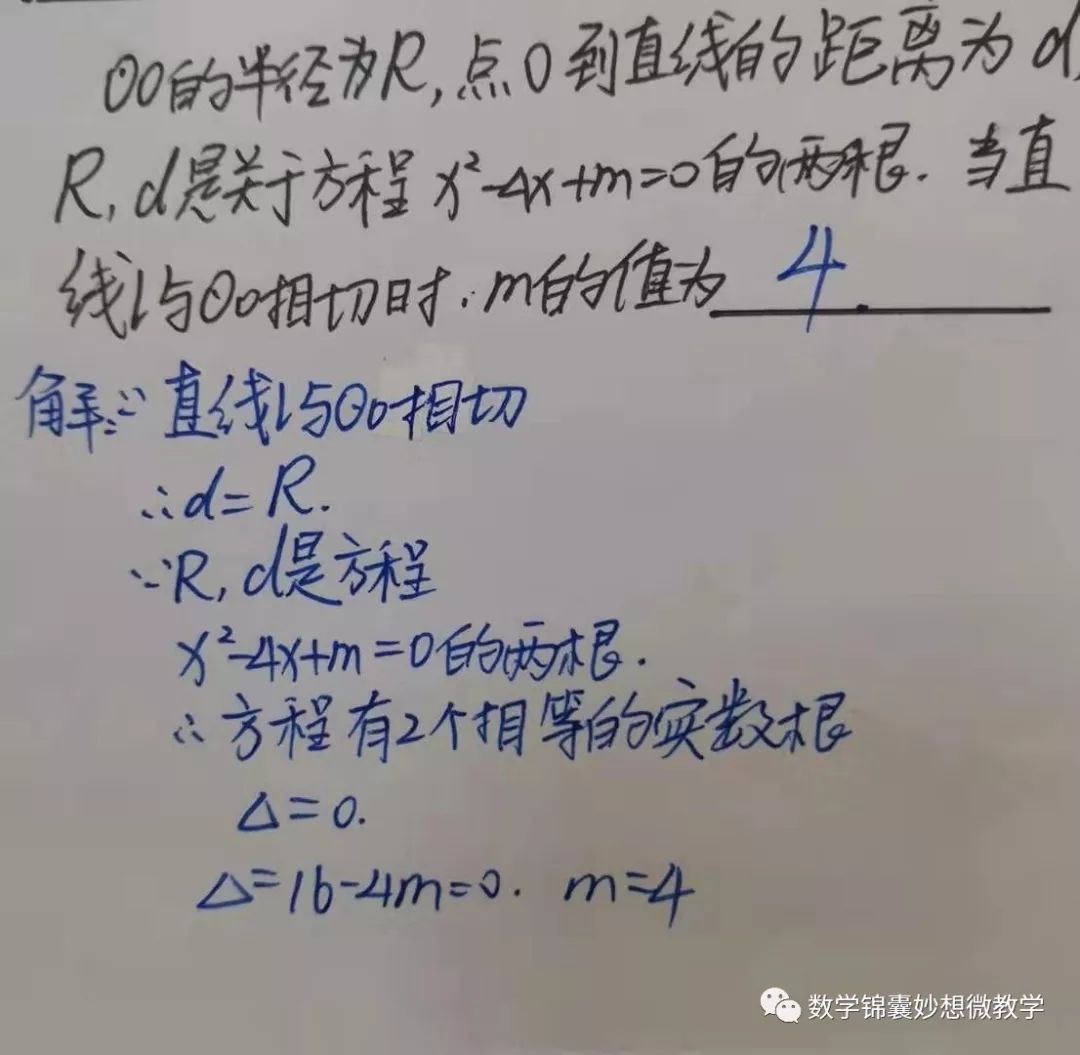 ⊙O的半径为R,点O到直线的距离为d,
R,d是关于方程 x²-4x+m=0的两根.当直
线l与⊙O相切时.m的值为 4.
解:∵直线l与⊙O相切
∴d=R.
∵R,d是方程
x²-4x+m=0的两根.
∴方程有2个相等的实数根
△=0.
△=16-4m=0. m=4
数学锦囊妙想微教学